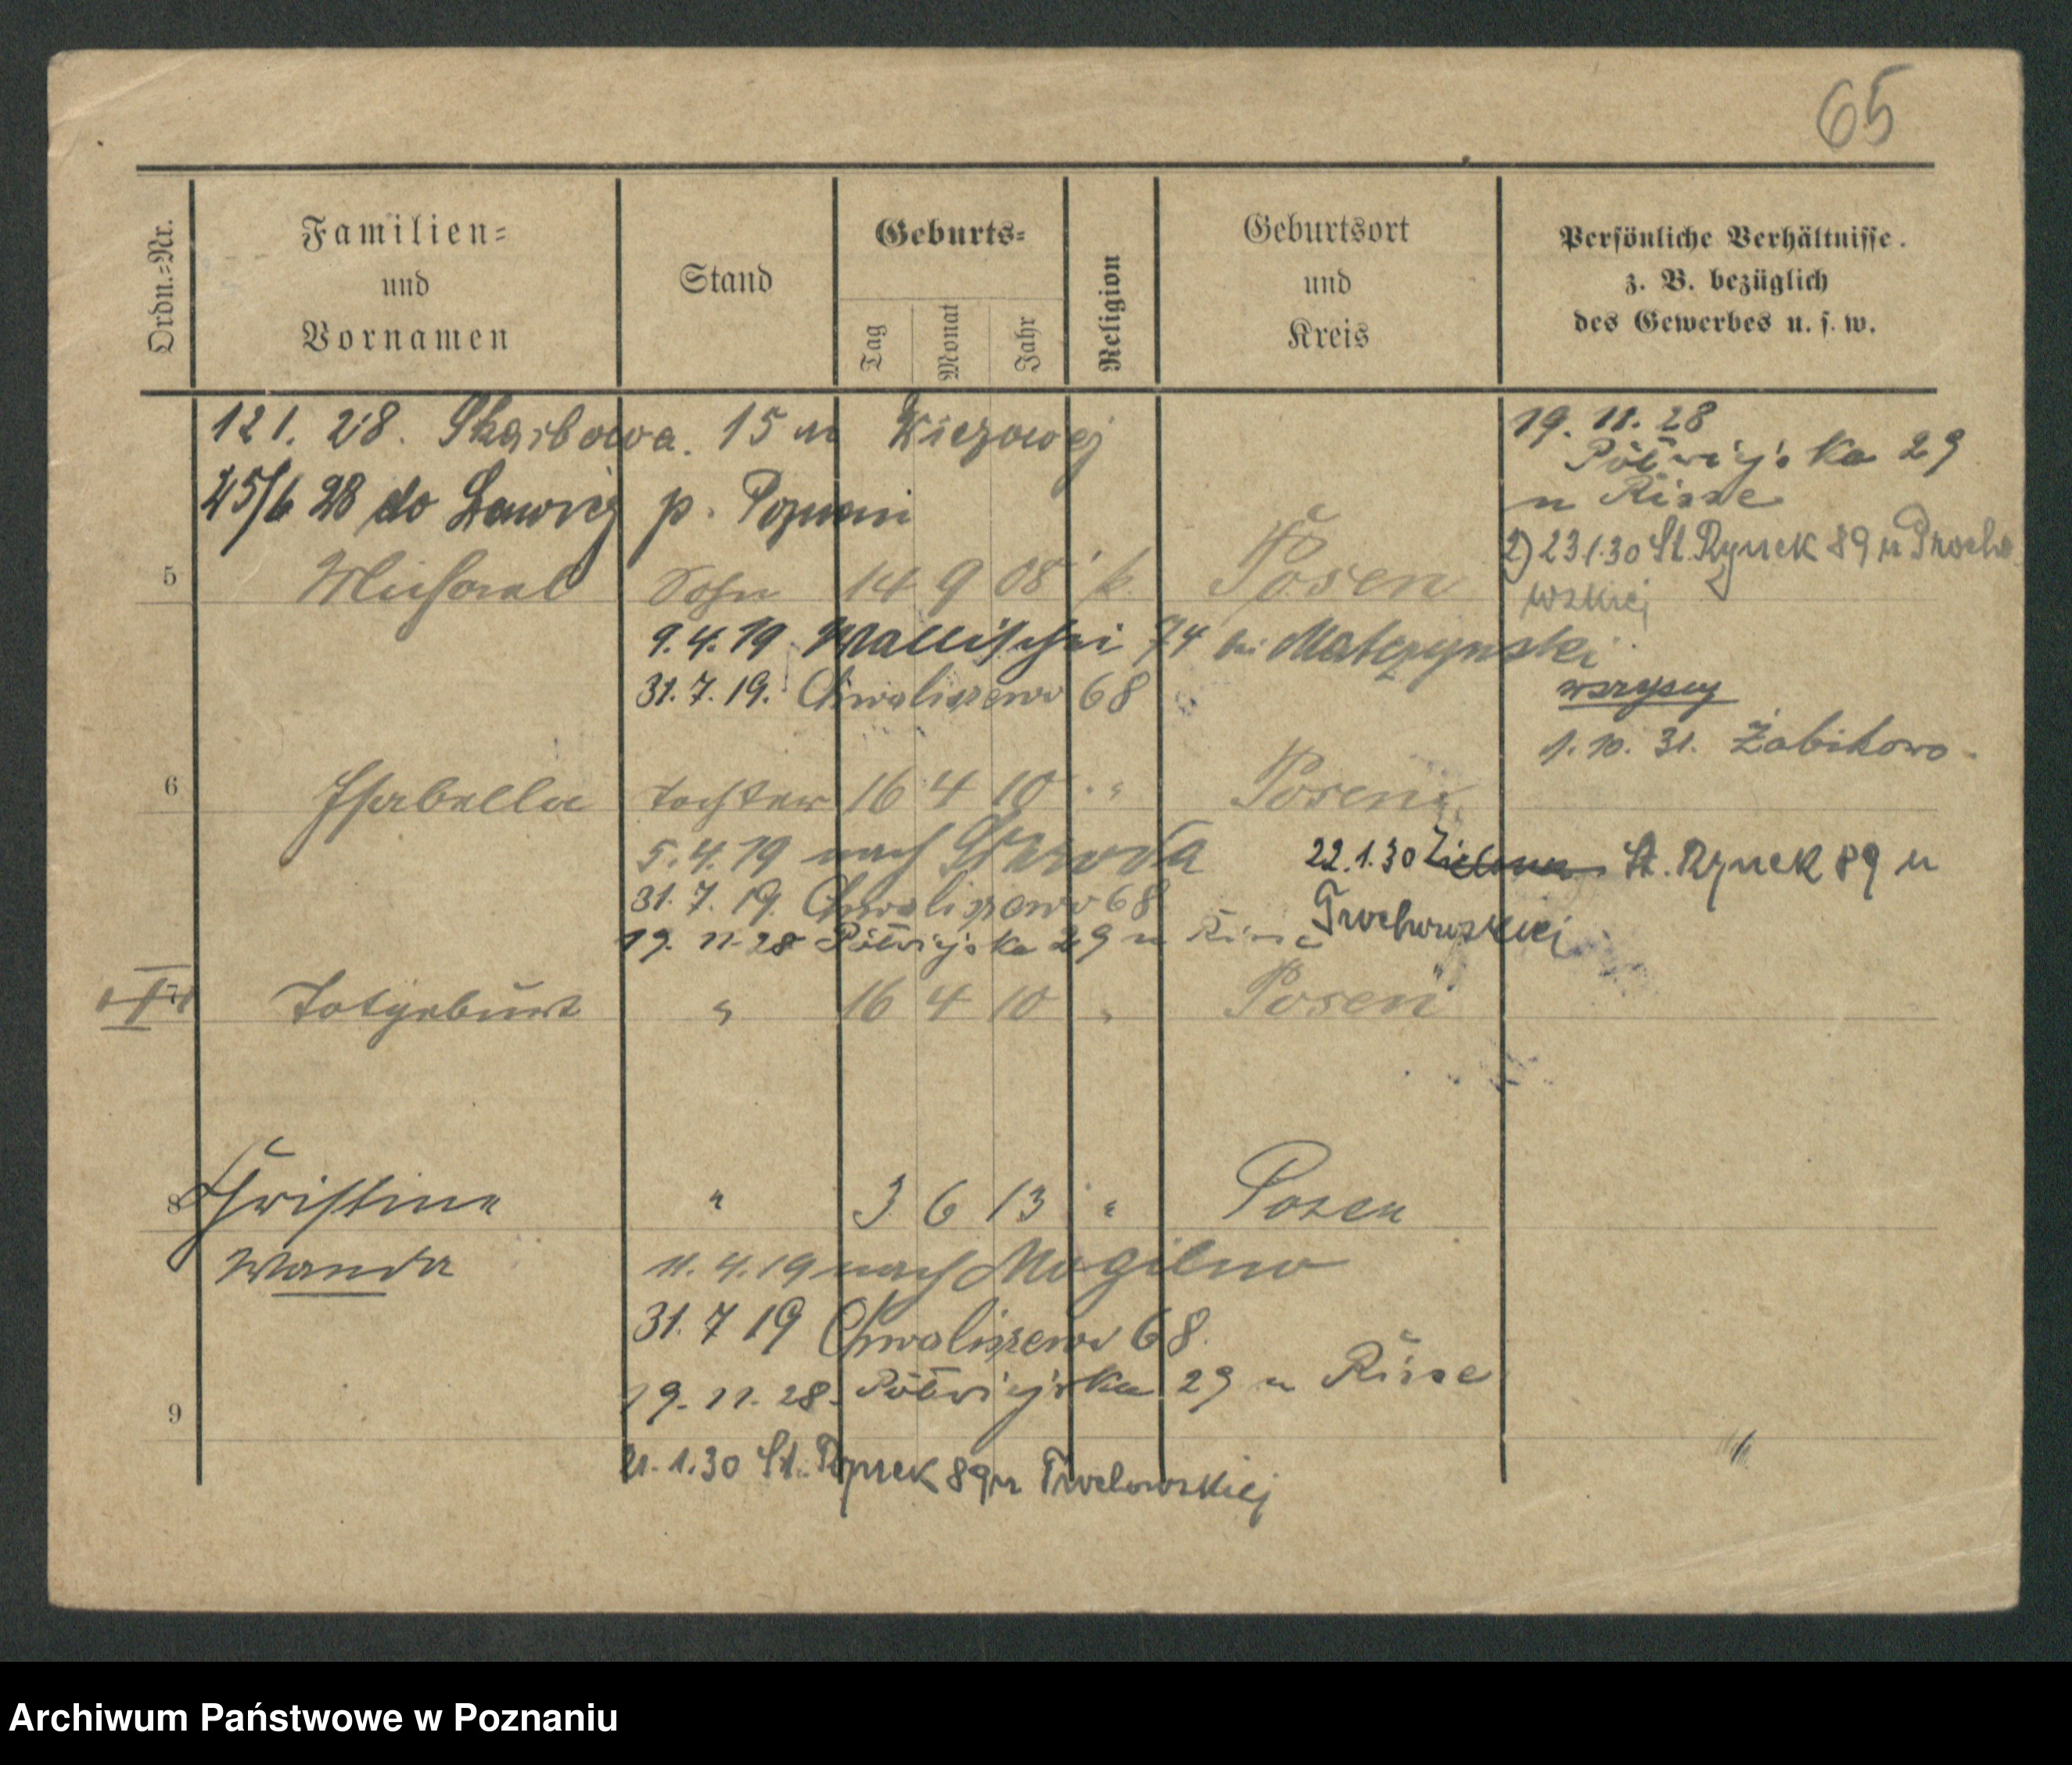 65
Ordn.-Nr.
Familien-
und
Vornamen
Stand
Geburts-
Tag
Monat
Jahr
Religion
Geburtsort
und
Kreis
Persönliche Verhältnisse.
z. B. bezüglich
des Gewerbes u. s. w.
121. 28. Skarbowa. 15 u
19. 11. 28
Półwiejska 29
u Risse
25/6 28 do Ławicy p. Poznań
2) 23.1.30 St. Rynek 89 u
5 Michael Sohn 14 9 08 k. Posen
9.4.19 Wallischei 74 bei Matczynski
31.7.19. Chwaliszewo 68
wszyscy
1. 10. 31. Żabikowo
6 Isabella Tochter 16 4 10 " Posen
5.4.19 nach Schroda
22.1.30 St. Rynek 89 u
31.7.19. Chwaliszewo 68
19. 11. 28 Półwiejska 29 u
Totgeburt " 16 4 10 " Posen
8 Christine " 3 6 13 " Posen
Wanda 11.4.19 nach Mogilno
31.7 19 Chwaliszewo 68.
19. 11. 28. Półwiejska 29 u Risse
9
21.1.30 St. Rynek 89 u
Archiwum Państwowe w Poznaniu